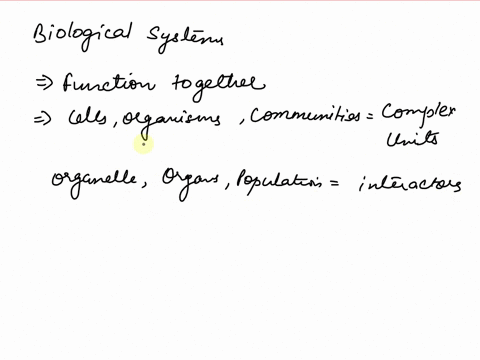 Biological Systems
⇒ function together
⇒ Cells, organisms, Communities = Complex
Units
organelle, Organs, Population = interactors